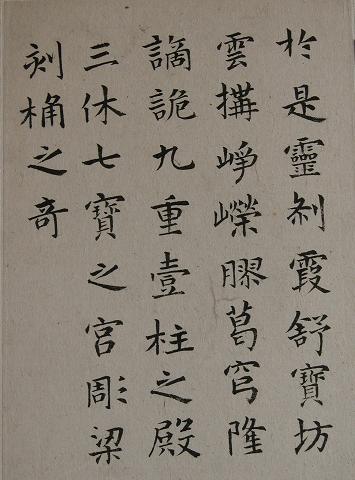 於是靈剎霞舒寶坊
雲構崢嶸膠葛穹隆
譎詭九重壹柱之殿
三休七寶之宮彫梁
刻桷之奇